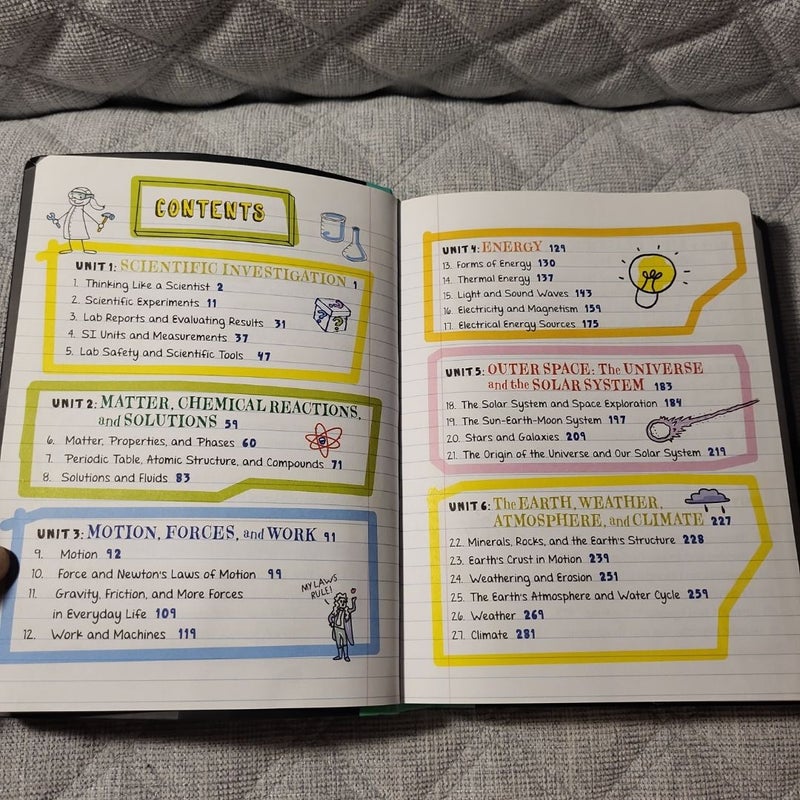 CONTENTS
UNIT 1: SCIENTIFIC INVESTIGATION 1
1. Thinking Like a Scientist 2
2. Scientific Experiments 11
3. Lab Reports and Evaluating Results 31
4. SI Units and Measurements 37
5. Lab Safety and Scientific Tools 47
? ?
UNIT 2: MATTER, CHEMICAL REACTIONS,
and SOLUTIONS 59
6. Matter, Properties, and Phases 60
7. Periodic Table, Atomic Structure, and Compounds 71
8. Solutions and Fluids 83
UNIT 3: MOTION, FORCES, and WORK 91
9. Motion 92
10. Force and Newton's Laws of Motion 99
11. Gravity, Friction, and More Forces
in Everyday Life 109
12. Work and Machines 119
MY LAWS
RULE!
UNIT 4: ENERGY 129
13. Forms of Energy 130
14. Thermal Energy 137
15. Light and Sound Waves 143
16. Electricity and Magnetism 159
17. Electrical Energy Sources 175
UNIT 5: OUTER SPACE: The UNIVERSE
and the SOLAR SYSTEM 183
18. The Solar System and Space Exploration 184
19. The Sun-Earth-Moon System 197
20. Stars and Galaxies 209
21. The Origin of the Universe and Our Solar System 219
UNIT 6: The EARTH, WEATHER,
ATMOSPHERE, and CLIMATE 227
22. Minerals, Rocks, and the Earth's Structure 228
23. Earth's Crust in Motion 239
24. Weathering and Erosion 251
25. The Earth's Atmosphere and Water Cycle 259
26. Weather 269
27. Climate 281